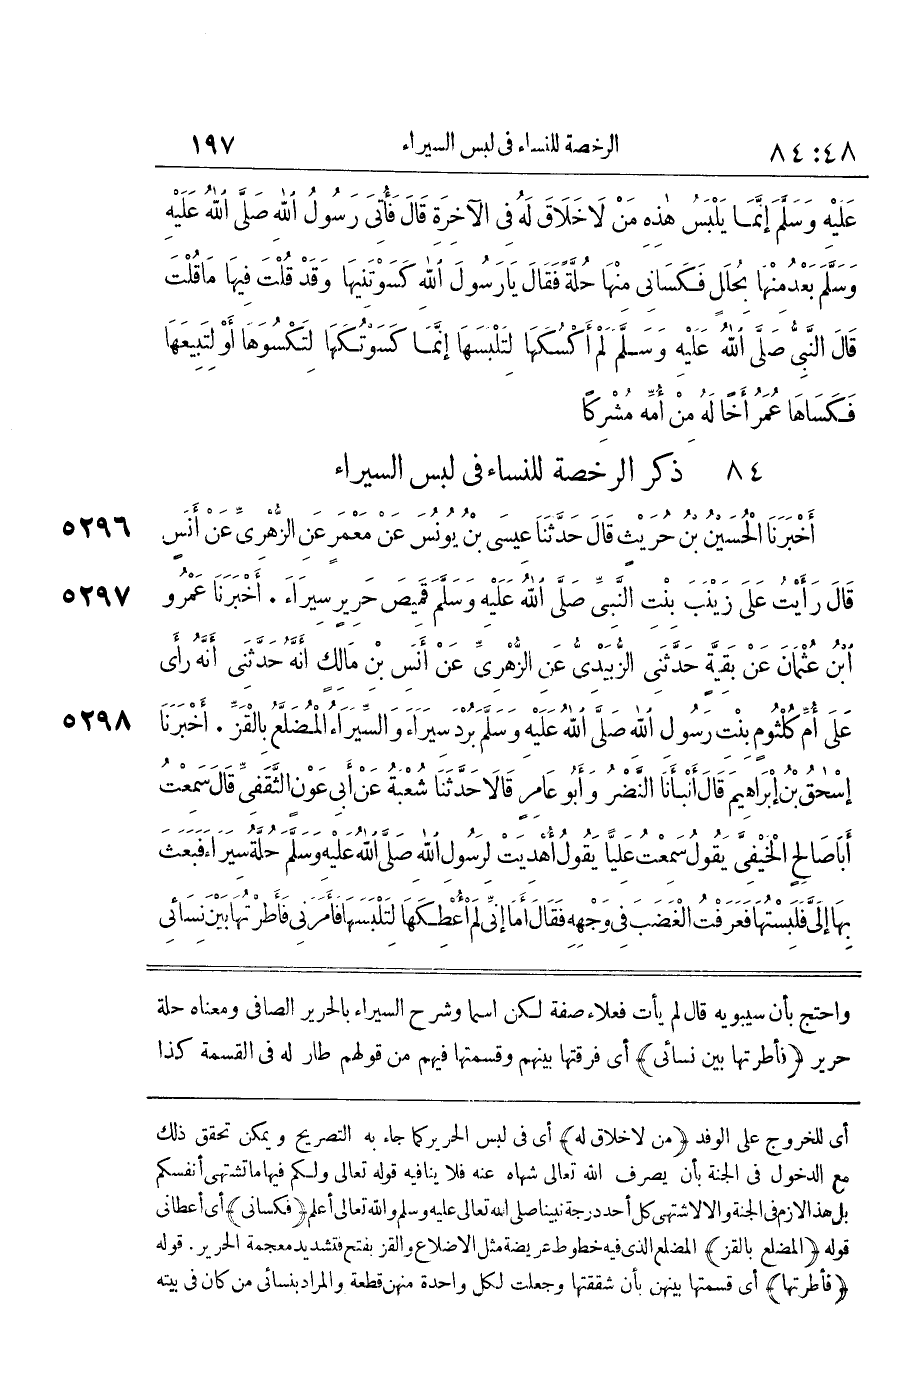 ٤٨ : ٨٤ الرخصة للنساء فى لبس السيراء ١٩٧
عَلَيْهِ وَسَلَّمَ إِنَّمَا يَلْبَسُ هٰذِهِ مَنْ لَا خَلَاقَ لَهُ فِى الْآخِرَةِ قَالَ فَأُتِىَ رَسُولُ اللهِ صَلَّى اللهُ عَلَيْهِ
وَسَلَّمَ بَعْدُ مِنْهَا بِحُلَلٍ فَكَسَانِى مِنْهَا حُلَّةً فَقَالَ يَا رَسُولَ اللهِ كَسَوْتَنِيهَا وَقَدْ قُلْتَ فِيهَا مَا قُلْتَ
قَالَ النَّبِىُّ صَلَّى اللهُ عَلَيْهِ وَسَلَّمَ لَمْ أَكْسُكَهَا لِتَلْبَسَهَا إِنَّمَا كَسَوْتُكَهَا لِتَكْسُوَهَا أَوْ لِتَبِيعَهَا
فَكَسَاهَا عُمَرُ أَخًا لَهُ مِنْ أُمِّهِ مُشْرِكًا
٨٤ ذكر الرخصة للنساء فى لبس السيراء
أَخْبَرَنَا الْحُسَيْنُ بْنُ حُرَيْثٍ قَالَ حَدَّثَنَا عِيسَى بْنُ يُونُسَ عَنْ مَعْمَرٍ عَنِ الزُّهْرِىِّ عَنْ أَنَسٍ ٥٢٩٦
قَالَ رَأَيْتُ عَلَى زَيْنَبَ بِنْتِ النَّبِىِّ صَلَّى اللهُ عَلَيْهِ وَسَلَّمَ قَمِيصَ حَرِيرٍ سِيَرَاءَ . أَخْبَرَنَا عَمْرُو ٥٢٩٧
ابْنُ عُثْمَانَ عَنْ بَقِيَّةَ حَدَّثَنِى الزُّبَيْدِىُّ عَنِ الزُّهْرِىِّ عَنْ أَنَسِ بْنِ مَالِكٍ أَنَّهُ حَدَّثَنِى أَنَّهُ رَأَى
عَلَى أُمِّ كُلْثُومٍ بِنْتِ رَسُولِ اللهِ صَلَّى اللهُ عَلَيْهِ وَسَلَّمَ بُرْدَ سِيَرَاءَ وَالسِّيَرَاءُ الْمُضَلَّعُ بِالْقَزِّ . أَخْبَرَنَا ٥٢٩٨
إِسْحٰقُ بْنُ إِبْرَاهِيمَ قَالَ أَنْبَأَنَا النَّضْرُ وَأَبُو عَامِرٍ قَالَا حَدَّثَنَا شُعْبَةُ عَنْ أَبِى عَوْنٍ الثَّقَفِىِّ قَالَ سَمِعْتُ
أَبَا صَالِحٍ الْحَنَفِىَّ يَقُولُ سَمِعْتُ عَلِيًّا يَقُولُ أُهْدِيَتْ لِرَسُولِ اللهِ صَلَّى اللهُ عَلَيْهِ وَسَلَّمَ حُلَّةُ سِيَرَاءَ فَبَعَثَ
بِهَا إِلَىَّ فَلَبِسْتُهَا فَعَرَفْتُ الْغَضَبَ فِى وَجْهِهِ فَقَالَ أَمَا إِنِّى لَمْ أُعْطِكَهَا لِتَلْبَسَهَا فَأَمَرَنِى فَأَطَرْتُهَا بَيْنَ نِسَائِى
واحتج بأن سيبويه قال لم يأت فعلاء صفة لكن اسما وشرح السيراء بالحرير الصافى ومعناه حلة
حرير ﴿فأطرتها بين نسائى﴾ أى فرقتها بينهم وقسمتها فيهم من قولهم طار له فى القسمة كذا
أى للخروج على الوفد ﴿من لا خلاق له﴾ أى فى لبس الحرير كما جاء به التصريح ويمكن تحقق ذلك
مع الدخول فى الجنة بأن يصرف الله تعالى شهاه عنه فلا ينافيه قوله تعالى ولكم فيها ما تشتهى أنفسكم
بل هذا لازم فى الجنة والا لاشتهى كل أحد درجة نبينا صلى الله تعالى عليه وسلم والله تعالى أعلم ﴿فكسانى﴾ أى أعطانى
قوله ﴿المضلع بالقز﴾ المضلع الذى فيه خطوط عريضة مثل الاضلاع والقز بفتح فتشديد معجمة الحرير . قوله
﴿فأطرتها﴾ أى قسمتها بينهن بأن شققتها وجعلت لكل واحدة منهن قطعة والمراد بنسائى من كان فى بيته